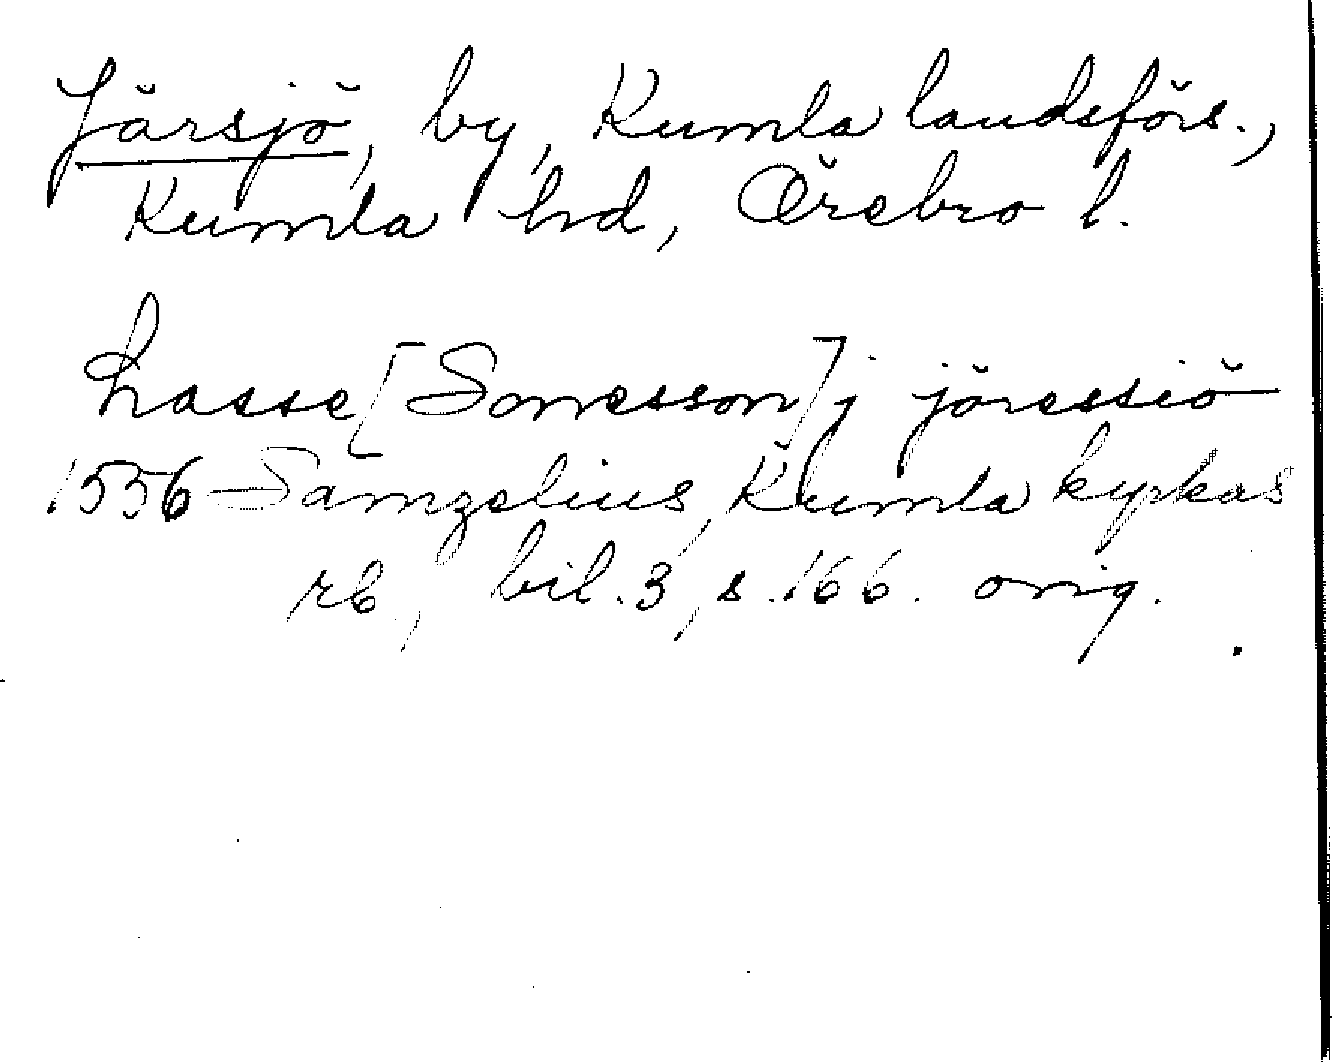 Järsjö, by, Kumla landsförs.,
Kumla hd, Örebro l.
Lasse [Sonesson] j jöressiö
1556 Sämzelius, Kumla kyrkas
rb, bil. 3, s. 166. orig.